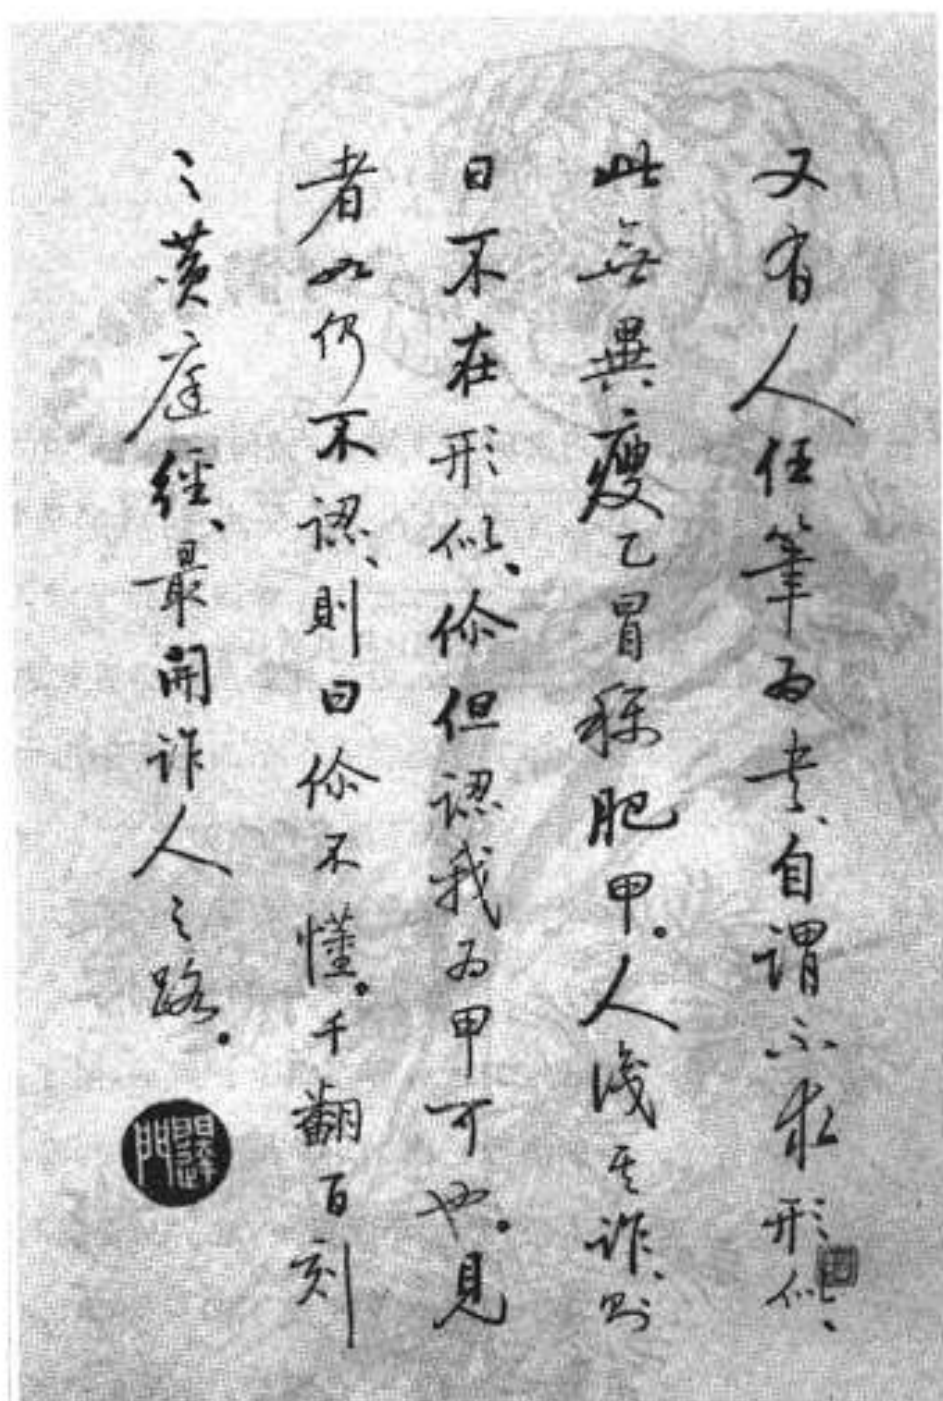 又有人任筆為書、自謂不求形似、
此無異瘦乙冒称肥甲。人識其詐、則
曰不在形似、伱但認我为甲可也。見
者如仍不認、則曰伱不懂。千翻百刻
之黄庭經、最開詐人之路。